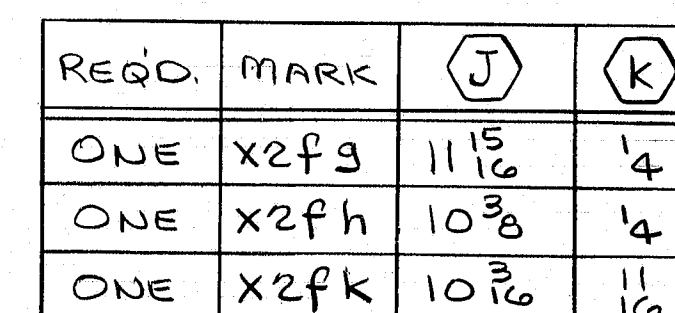 REQ'D. MARK J K
ONE x2fg 11 15/16 1/4
ONE x2fh 10 3/8 1/4
ONE x2fk 10 3/16 11/16